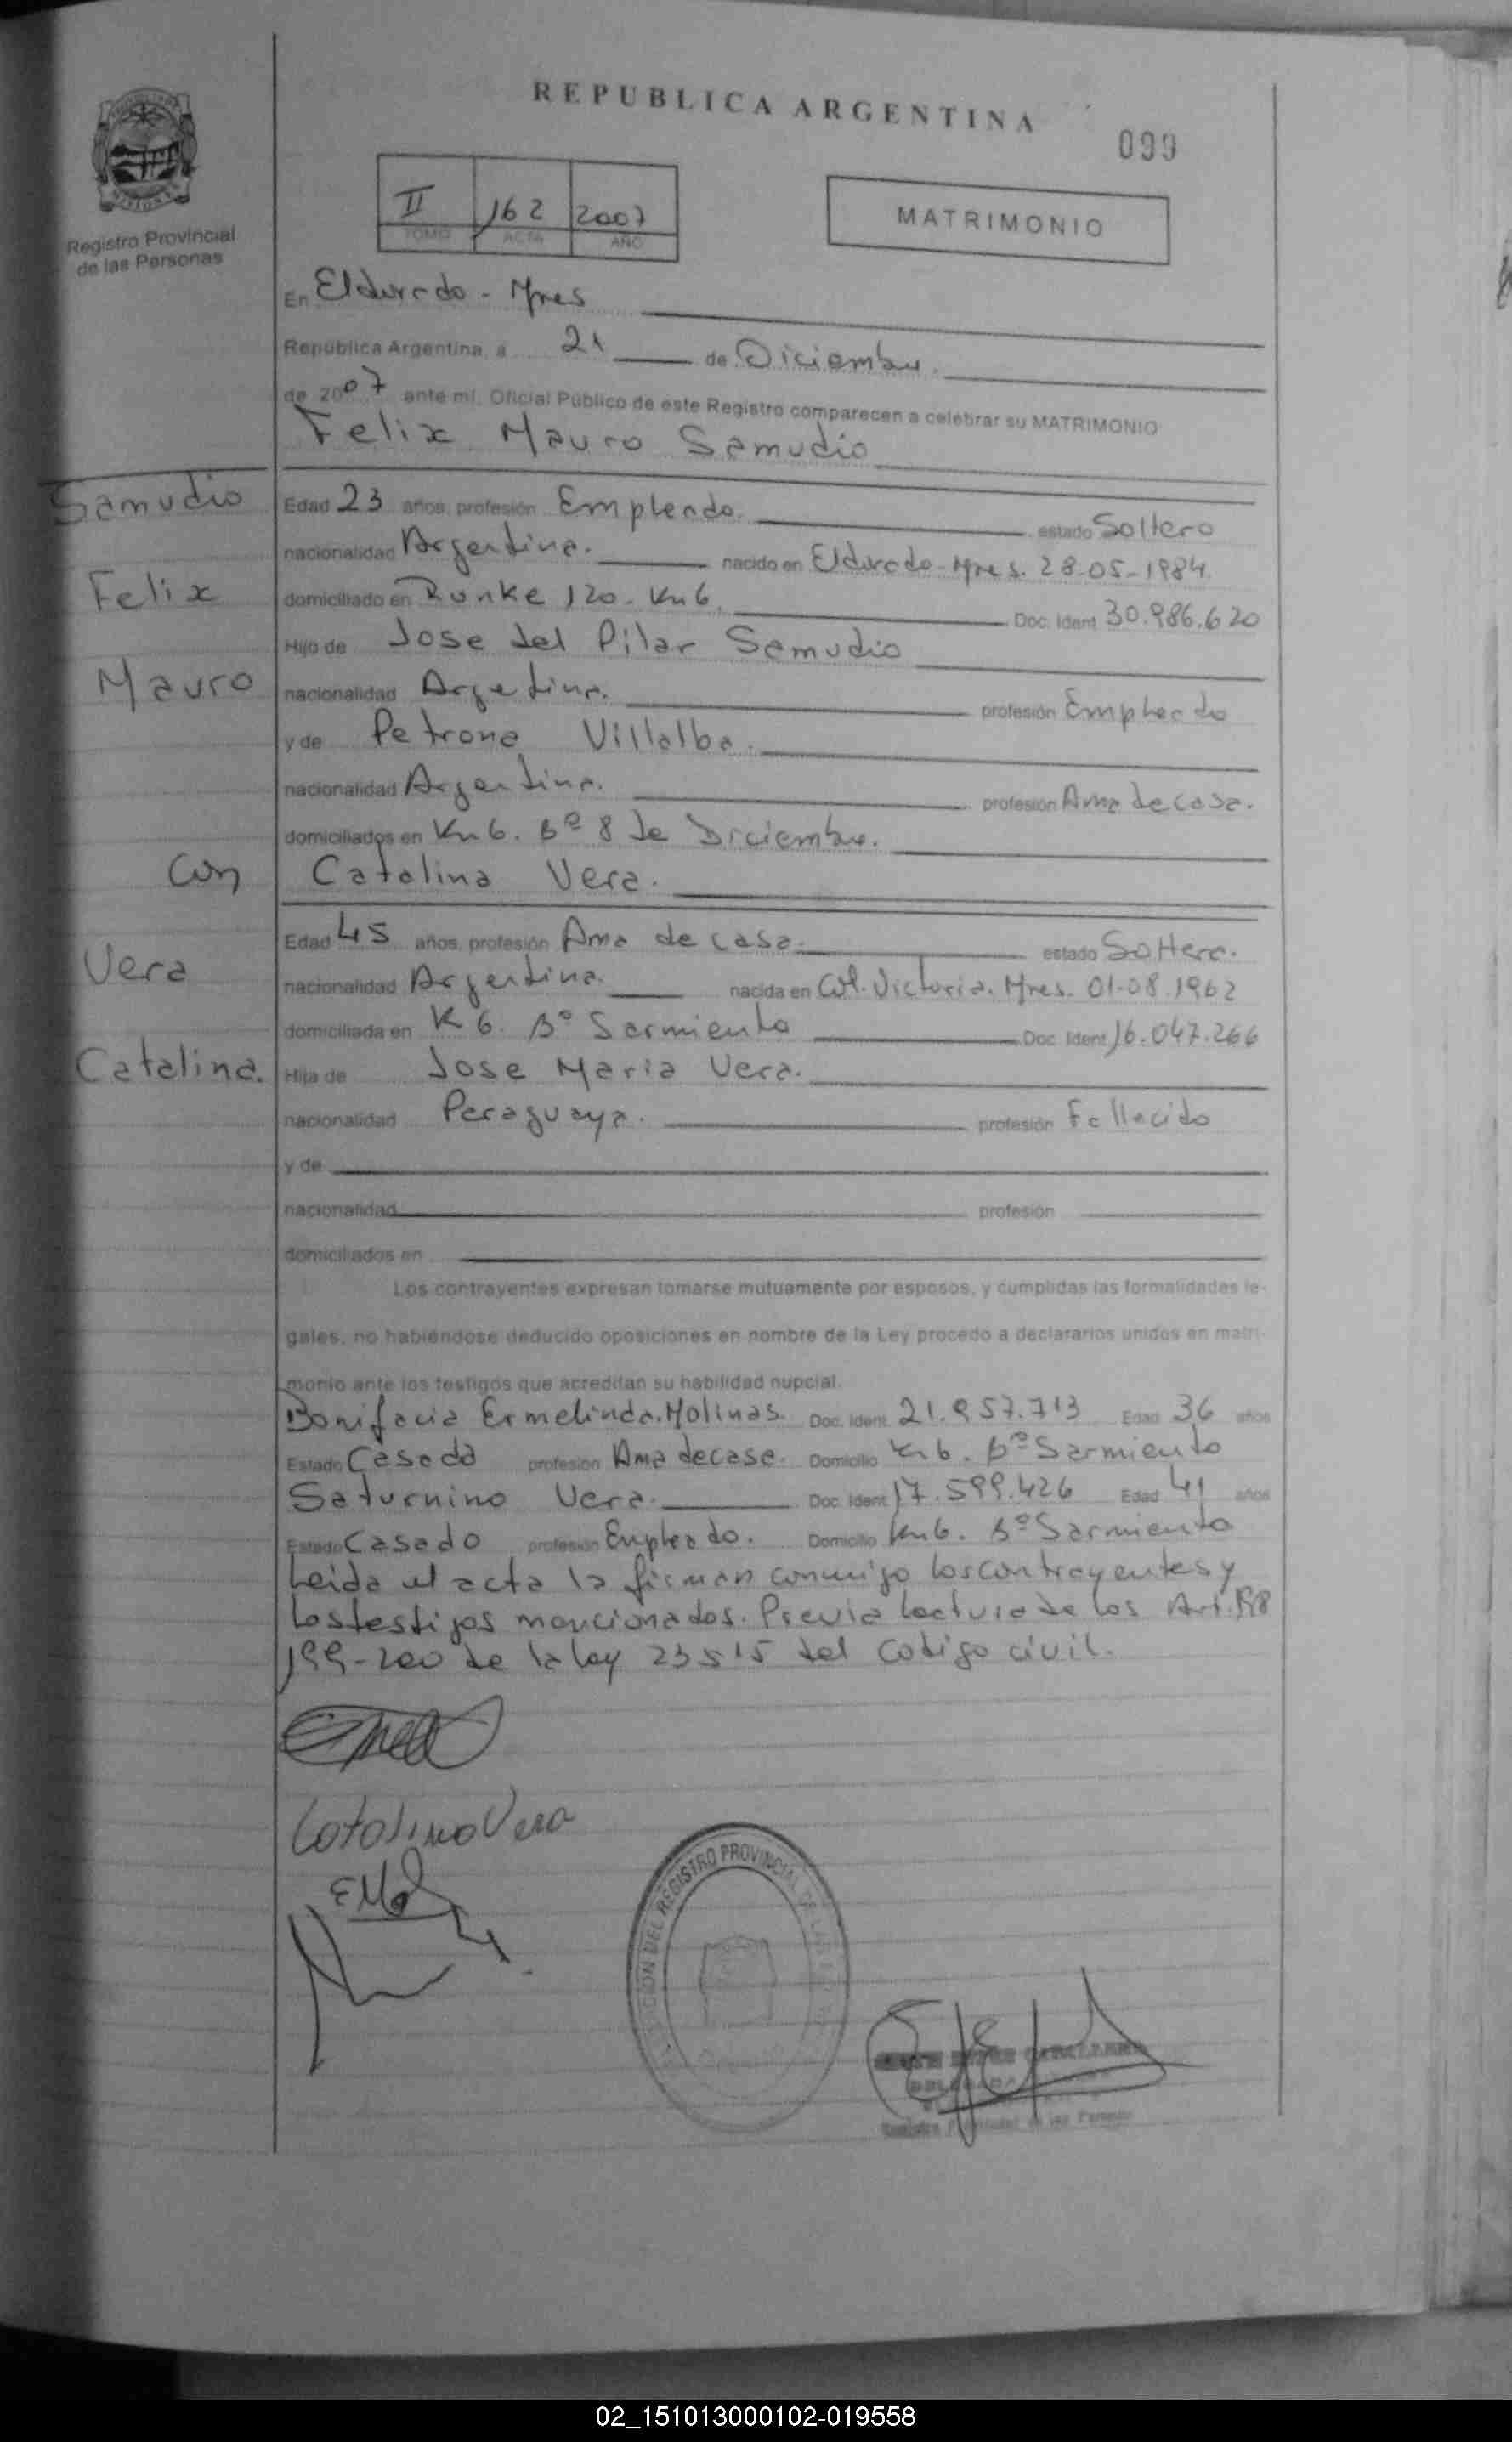 REPUBLICA ARGENTINA
099
II 162 2007
TOMO ACTA AÑO
MATRIMONIO
Registro Provincial
de las Personas
En Eldorado - Mnes
República Argentina, a 21 de Diciembre.
de 2007 ante mi, Oficial Público de este Registro comparecen a celebrar su MATRIMONIO
Felix Mauro Samudio
Samudio
Edad 23 años, profesión Empleado. estado Soltero
nacionalidad Argentina. nacido en Eldorado-Mnes. 28-05-1984
Felix
domiciliado en Runke 120. Km6. Doc. Ident 30.986.620
Hijo de Jose del Pilar Samudio
Mauro
nacionalidad Argetina. profesión Empleado
y de Petrona Villalba.
nacionalidad Argentina. profesión Ama de casa.
domiciliados en Km6. Bº 8 de Diciembre.
Con
Catalina Vera.
Edad 45 años, profesión Ama de casa. estado Soltera.
Vera
nacionalidad Argentina. nacida en Col. Victoria. Mnes. 01-08.1962
domiciliada en K 6. Bº Sarmiento Doc. Ident 16.047.266
Catalina.
Hija de Jose Maria Vera.
nacionalidad Paraguaya. profesión Fallecido
y de
nacionalidad profesión
domiciliados en
Los contrayentes expresan tomarse mutuamente por esposos, y cumplidas las formalidades le-
gales, no habiéndose deducido oposiciones en nombre de la Ley procedo a declararlos unidos en matri-
monio ante los testigos que acreditan su habilidad nupcial.
Bonifacia Ermelinda. Molinas. Doc. Ident. 21.957.713 Edad 36 años
Estado Casada profesión Ama de casa. Domicilio Km6. Bº Sarmiento
Saturnino Vera. Doc. Ident 17.599.426 Edad 41 años
Estado Casado profesión Empleado. Domicilio Km6. Bº Sarmiento
Leida el acta la firman conmigo los contrayentes y
los testigos mencionados. Previa lectura de los Art. 198
199-200 de la ley 23515 del Codigo civil.
Catalina Vera
DEL REGISTRO PROVINCIAL DE LAS
02_151013000102-019558